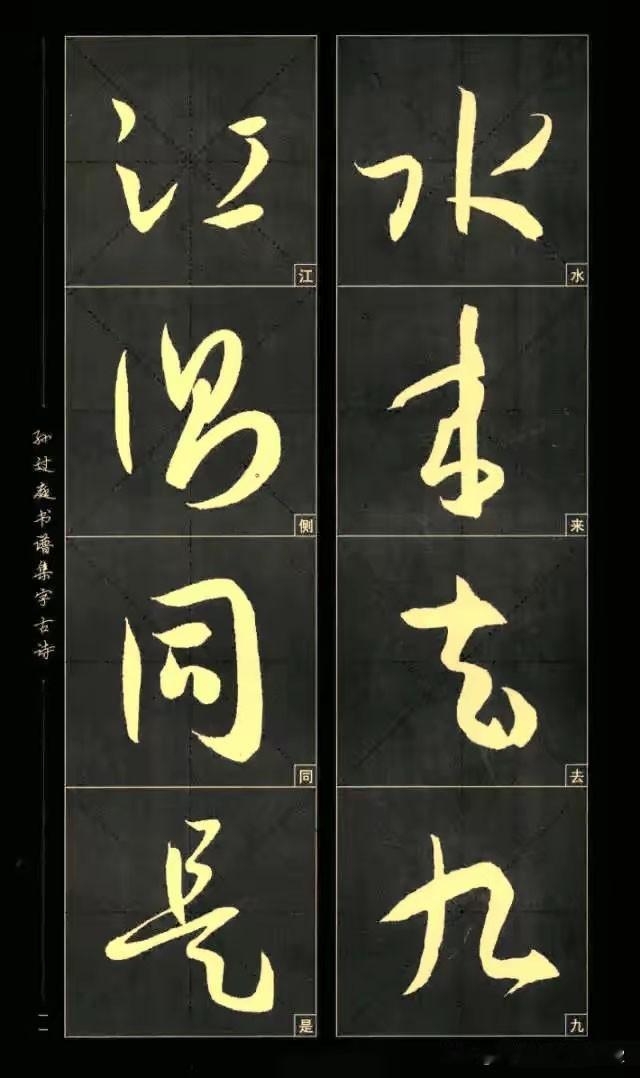 水来去九
水来去九
江侧同是
江侧同是
孙过庭书谱集字古诗
一一